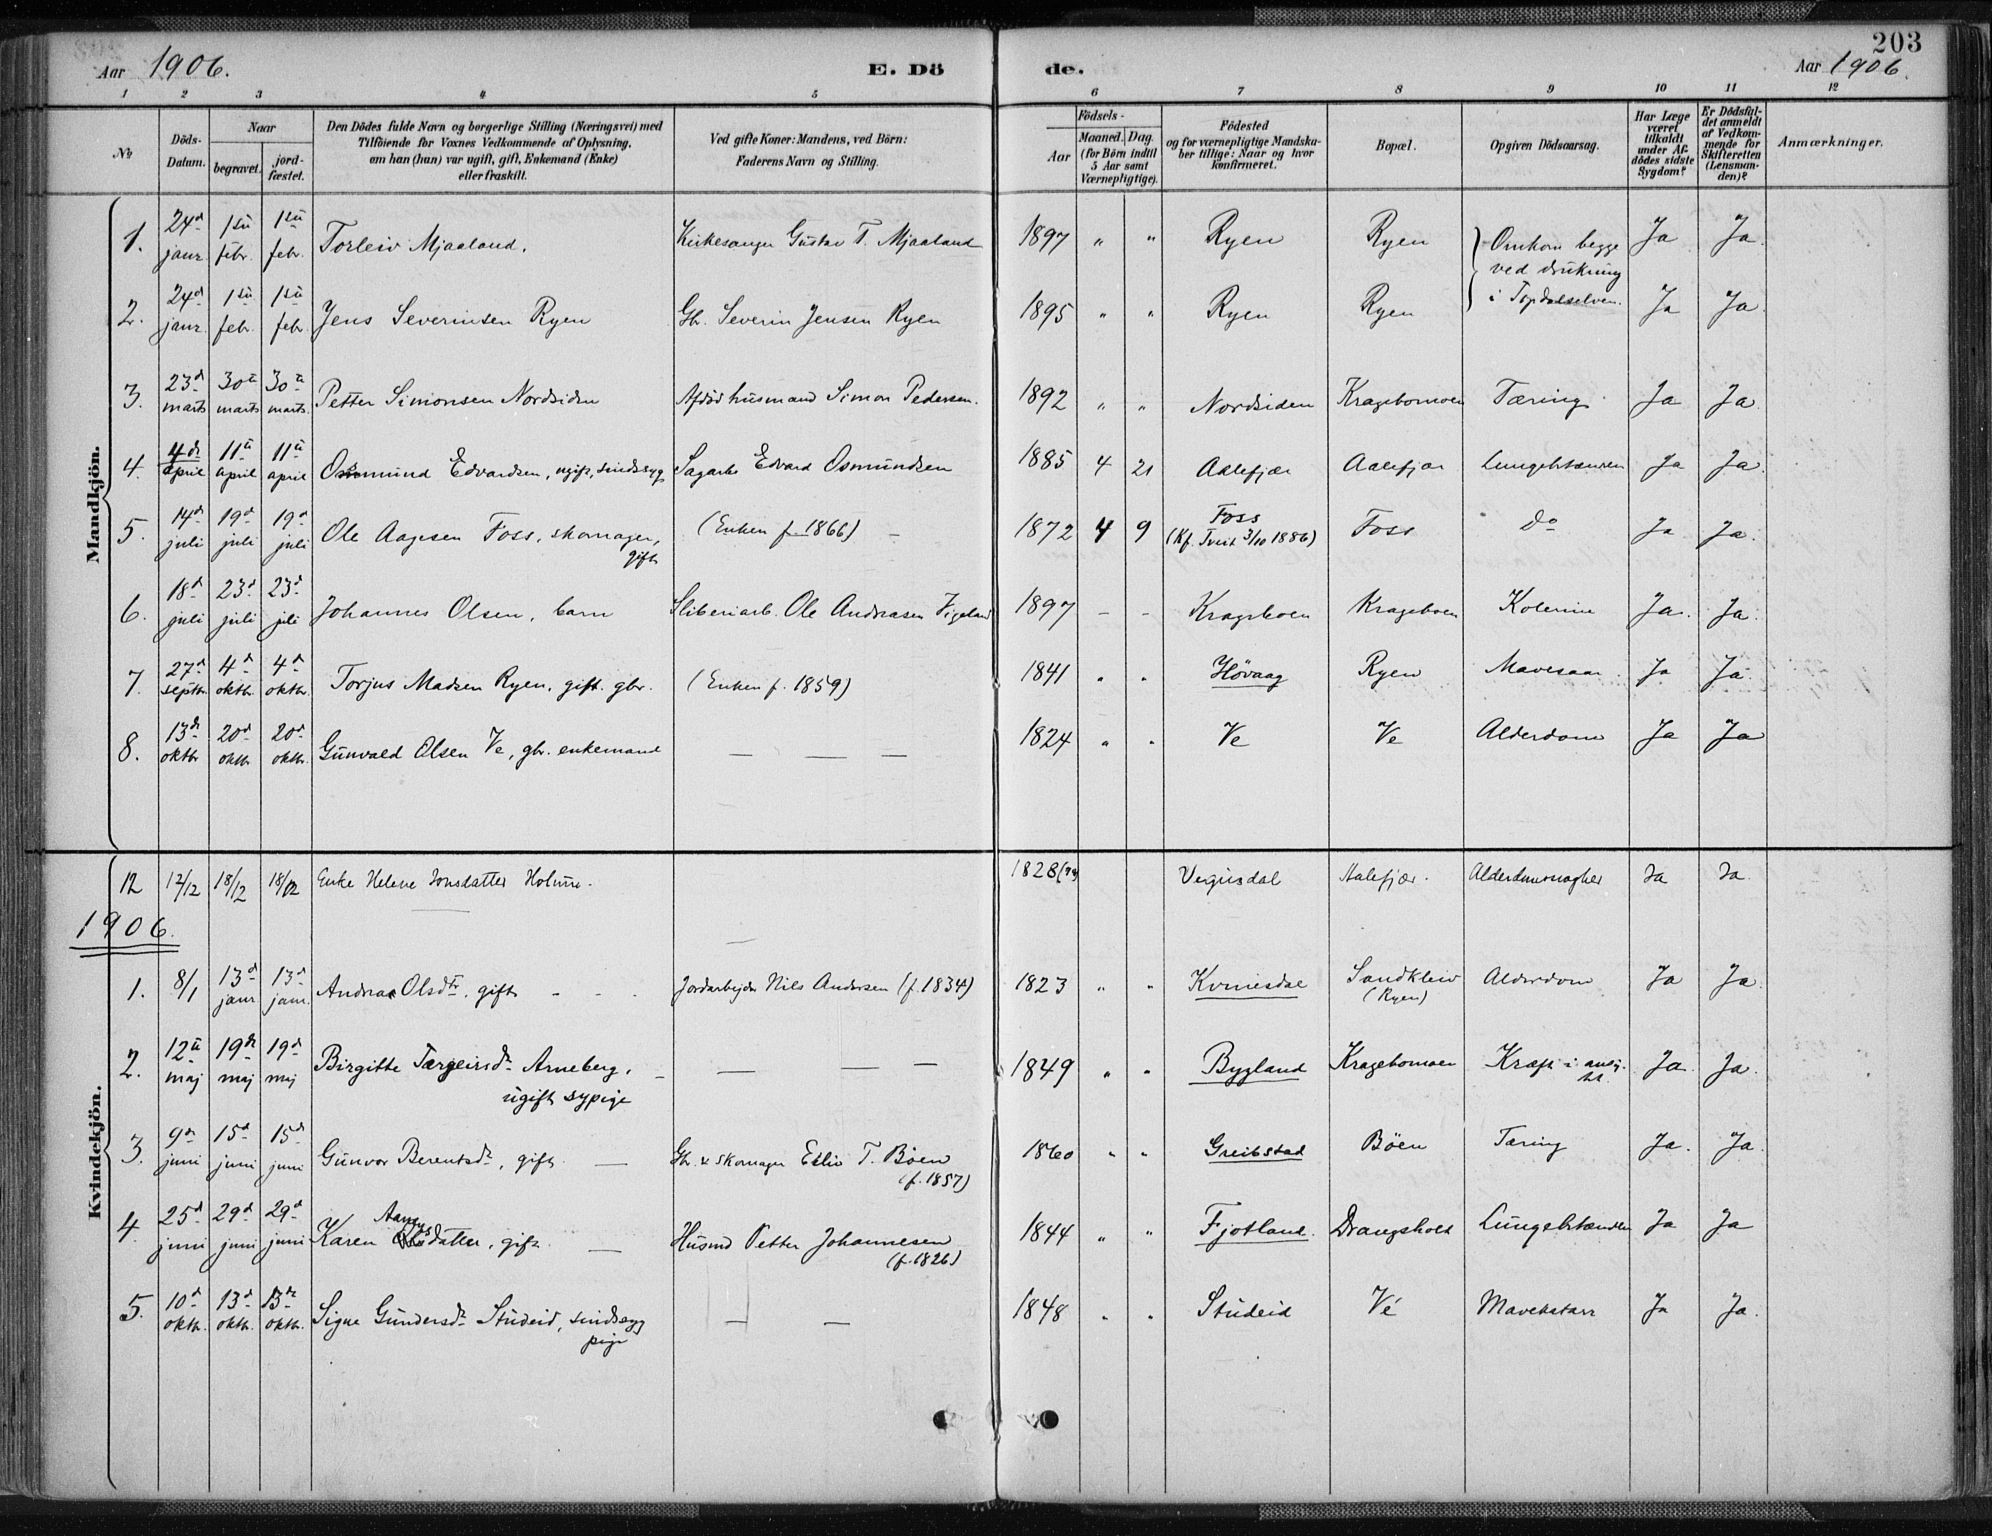 203
Aar 1906. E. Dö de. Aar 1906.
1 2 3 4 5 6 7 8 9 10 11 12
No
Döds-Datum.
Naar
begravet.
jord-fæstet.
Den Dödes fulde Navn og borgerlige Stilling (Næringsvei) med
Tilföiende for Voxnes Vedkommende af Oplysning,
om han (hun) var ugift, gift, Enkemand (Enke)
eller fraskilt.
Ved gifte Koner: Mandens, ved Börn:
Faderens Navn og Stilling.
Födsels-
Aar
Maaned. Dag.
(for Börn indtil
5 Aar samt
Værnepligtige).
Födested
og for værnepligtige Mandska-
ber tillige: Naar og hvor
konfirmeret.
Bopæl.
Opgiven Dödsaarsag.
Har Læge
været
tilkaldt
under Af-
dödes sidste
Sygdom?
Er Dödsfal-
det anmeldt
af Vedkom-
mende for
Skifteretten
(Lensman-
den)?
Anmærkninger.
Mandkjön.
1. 24d janr. 1ste febr. 1ste febr. Torleiv Mjaaland. Kirkesanger Gustav T. Mjaaland 1897 " " Ryen Ryen Omkom begge Ja Ja.
ved drukning
i Topdalselven.
2. 24d janr. 1ste febr. 1ste febr. Jens Severinsen Ryen Gb. Severin Jensen Ryen 1895 " " Ryen Ryen Ja Ja.
3. 23d marts 30te marts 30te marts. Petter Simonsen Nordsiden Afdöd husmand Simon Pedersen. 1892 " " Nordsiden Kragebomoen Tæring. Ja Ja.
4. 4de april 11te april 11te april Osmund Edvardsen, ugift, sindssyg Sagarb. Edvard Osmundsen 1885 4 21 Aalefjær Aalefjær Lungebetændelsen Ja Ja.
5. 14d juli 19d juli 19d juli Ole Aagesen Foss, skomager, gift (Enken f. 1866) — 1872 4 9 Foss (Kf. Tveit 3/10 1886) Foss Do Ja Ja.
6. 18d juli 23d juli 23d juli Johannes Olsen, barn Sliberiarb. Ole Andreasen Vigeland 1897 - - Krageboen Krageboen Kolerine Ja. Ja.
7. 27d septbr. 4d oktbr. 4d oktbr. Torjus Madsen Ryen, gift. gbr. (Enken f. 1859) 1841 " " Hövaag Ryen Mavesaar. Ja Ja
8. 13de oktbr 20d oktbr 20d oktbr. Gunvald Olsen Ve, gbr. enkemand — — — 1824 " " Ve Ve Alderdom Ja Ja
Kvindekjön.
12 12/12 18/12 18/12 Enke Helene Jonsdatter Holme. 1828 Aalefjær. Ja Ja.
1906.
1. 8/1 13d janr 13d janr. Andrea Olsdtr. gift - - - Jordarbejder Nils Andersen (f. 1834) 1823 " " Kvinesdal Sandkleiv (Ryen) Alderdom Ja Ja.
2. 12te maj 19de maj 19d maj Birgitte Targeirsdr. Arneberg, ugift sypige — — — 1849 " " Bygland Kragebomoen Kræft i Ja. Ja.
3. 9de juni 15d juni 15d juni Gunvor Berentsdr., gift — Gbr. & skomager T. Böen (f. 1857) 1860 " " Greibstad Böen Tæring Ja. Ja.
4. 25d juni 29d juni 29d juni Karen datter, gift — Husmd Petter Johannesen (f. 1826) 1844 " " Fjotland. Drangsholt Lungebetændelse Ja Ja
5. 10d oktbr. 13d oktbr. 13de oktbr. Signe Gundersdr. Studeid, sindssyg pige — — 1848 " " Studeid Vé Ja Ja.